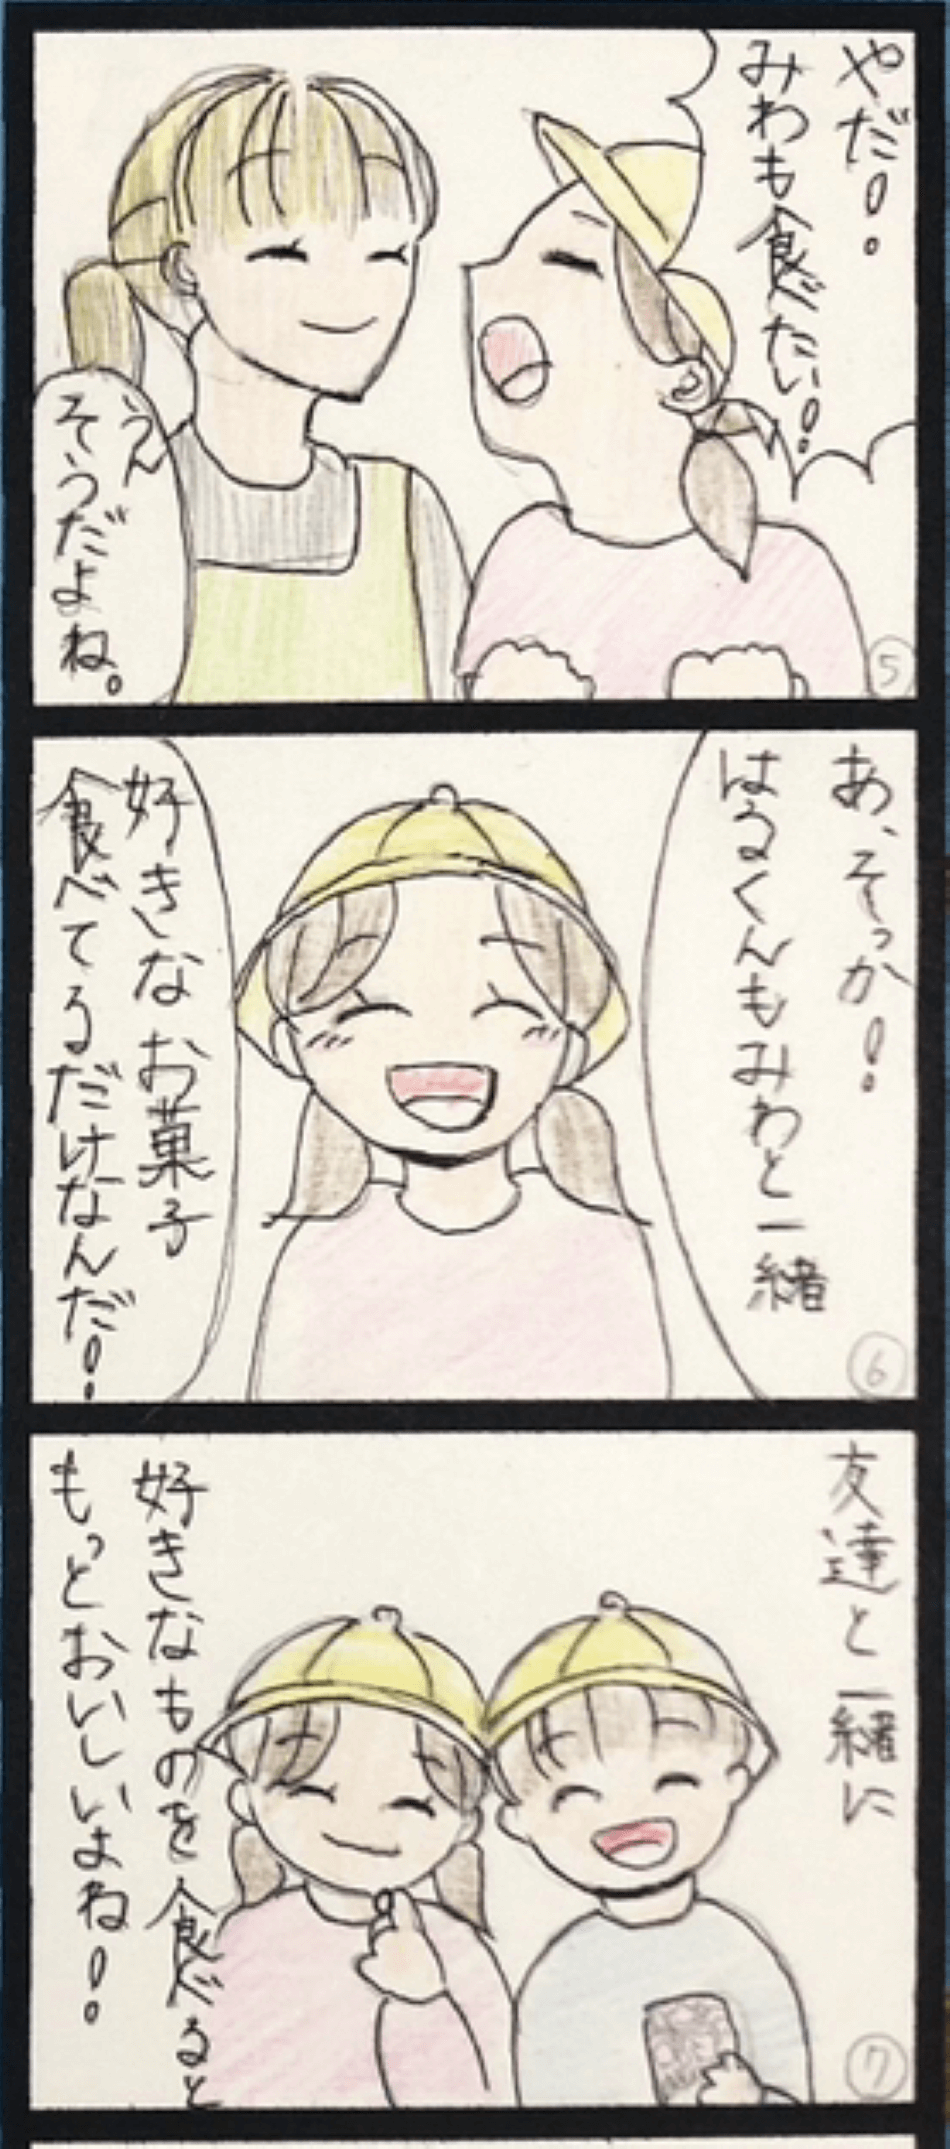 やだ!
みわも食べたい!
うん
そうだよね。
5
あ、そっか!
はるくんもみわと一緒
好きなお菓子
食べてるだけなんだ!
6
友達と一緒に
好きなものを食べると
もっとおいしいよね!
7